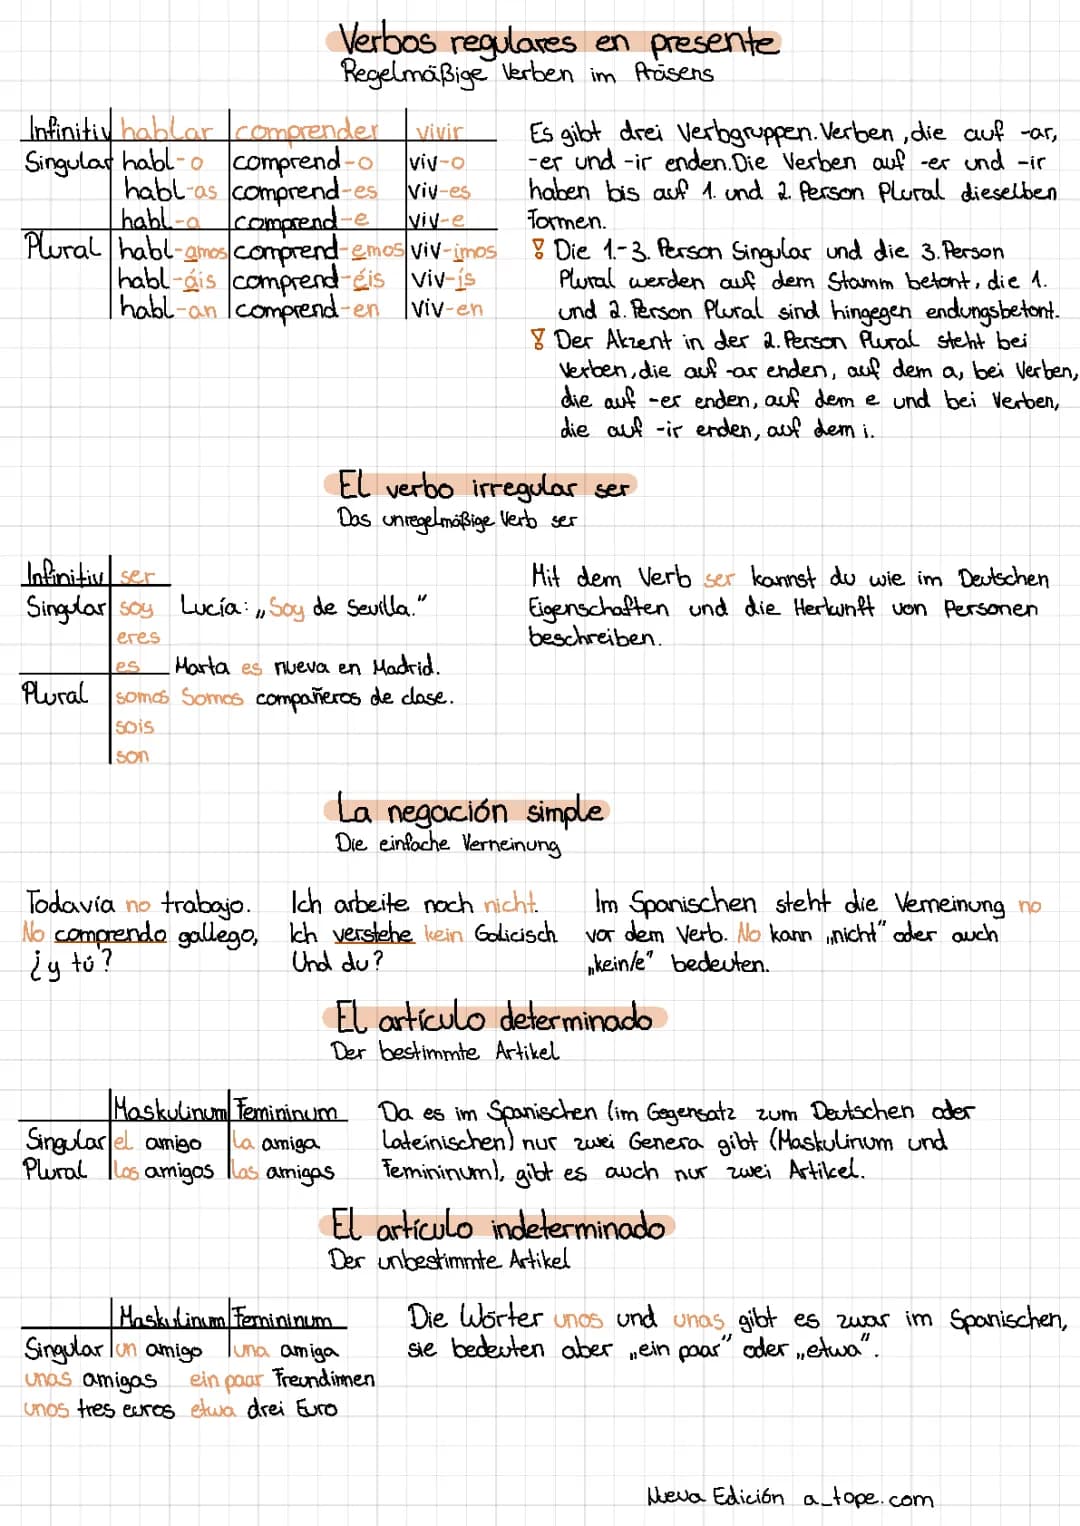 Verbos regulares en presente
Regelmäßige Verben im Präsens
Infinitiv hablar comprender vivir
Singular habl-o comprend-o viv-o
habl-as comprend-es viv-es
habl-a comprend-e viv-e
Plural habl-amos comprend-emos viv-imos
habl-áis comprend-éis viv-ís
habl-an comprend-en viv-en
Es gibt drei Verbgruppen. Verben, die auf -ar,
-er und -ir enden. Die Verben auf -er und -ir
haben bis auf 1. und 2. Person Plural dieselben
Formen.
! Die 1.-3. Person Singular und die 3. Person
Plural werden auf dem Stamm betont, die 1.
und 2. Person Plural sind hingegen endungsbetont.
! Der Akzent in der 2. Person Plural steht bei
Verben, die auf -ar enden, auf dem a, bei Verben,
die auf -er enden, auf dem e und bei Verben,
die auf -ir enden, auf dem i.
El verbo irregular ser
Das unregelmäßige Verb ser
Infinitiv ser
Singular soy Lucía: „Soy de Sevilla.“
eres
es Marta es nueva en Madrid.
Plural somos Somos compañeros de clase.
sois
son
Mit dem Verb ser kannst du wie im Deutschen
Eigenschaften und die Herkunft von Personen
beschreiben.
La negación simple
Die einfache Verneinung
Todavía no trabajo.
No comprendo gallego,
¿y tú?
Ich arbeite noch nicht.
Ich verstehe kein Galicisch
Und du?
Im Spanischen steht die Verneinung no
vor dem Verb. No kann „nicht“ oder auch
„kein/e“ bedeuten.
El artículo determinado
Der bestimmte Artikel
Maskulinum Femininum
Singular el amigo la amiga
Plural los amigos las amigas
Da es im Spanischen (im Gegensatz zum Deutschen oder
Lateinischen) nur zwei Genera gibt (Maskulinum und
Femininum), gibt es auch nur zwei Artikel.
El artículo indeterminado
Der unbestimmte Artikel
Maskulinum Femininum
Singular un amigo una amiga
unas amigas ein paar Freundinnen
unos tres euros etwa drei Euro
Die Wörter unos und unas gibt es zwar im Spanischen,
sie bedeuten aber „ein paar“ oder „etwa“.
Nueva Edición a_tope.com